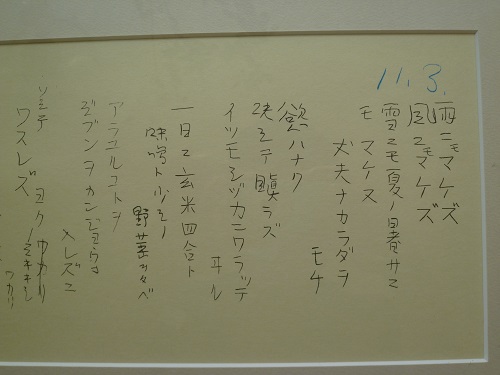 11.3.
雨ニモマケズ
風ニモマケズ
雪ニモ夏ノ暑サニ
モ マケヌ
丈夫ナカラダヲ
モチ
慾ハナク
決シテ瞋ラズ
イツモシヅカニワラッテ
ヰル
一日ニ玄米四合ト
味噌ト少シノ
野菜ヲタベ
アラユルコトヲ
ジブンヲカンジョウニ
入レズニ
ヨク
ミキキシ
ワカリ
ソシテ
ワスレズ